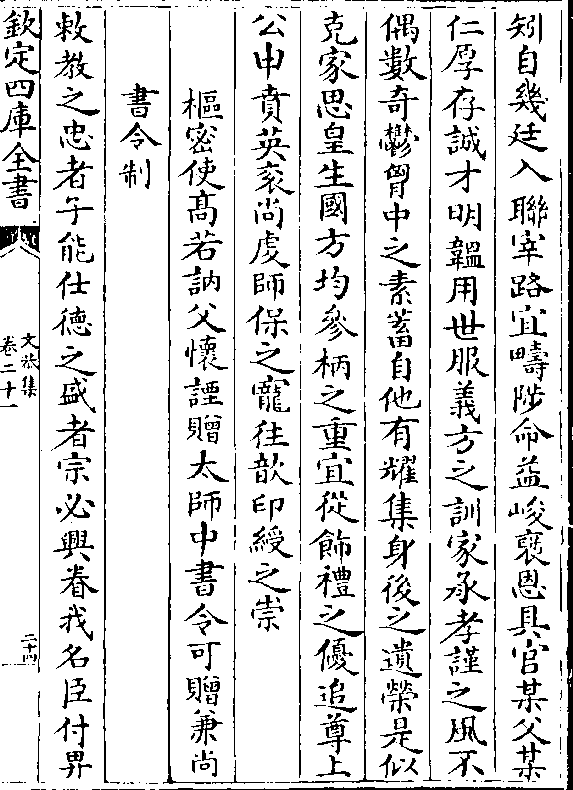 矧自幾廷入聯宰路宜疇陟命益峻褒恩具官某父某
仁厚存誠才明韞用世服義方之訓家承孝謹之風不
偶數奇鬱胷中之素蓄自他有耀集身後之遺榮是似
克家思皇生國方均參柄之重宜從飾禮之優追尊上
公申賁英衮尚虔師保之寵往歆印綬之崇
樞密使髙若訥父懷諲贈太師中書令可贈兼尚
書令制
敕教之忠者子能仕德之盛者宗必興眷我名臣付畀
欽定四庫全書
文恭集
卷二十一
二十四